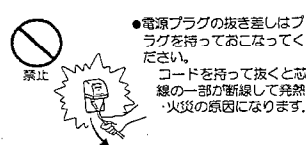 禁止
●電源プラグの抜き差しはプ
ラグを持っておこなってく
ださい。
コードを持って抜くと芯
線の一部が断線して発熱
・火災の原因になります.